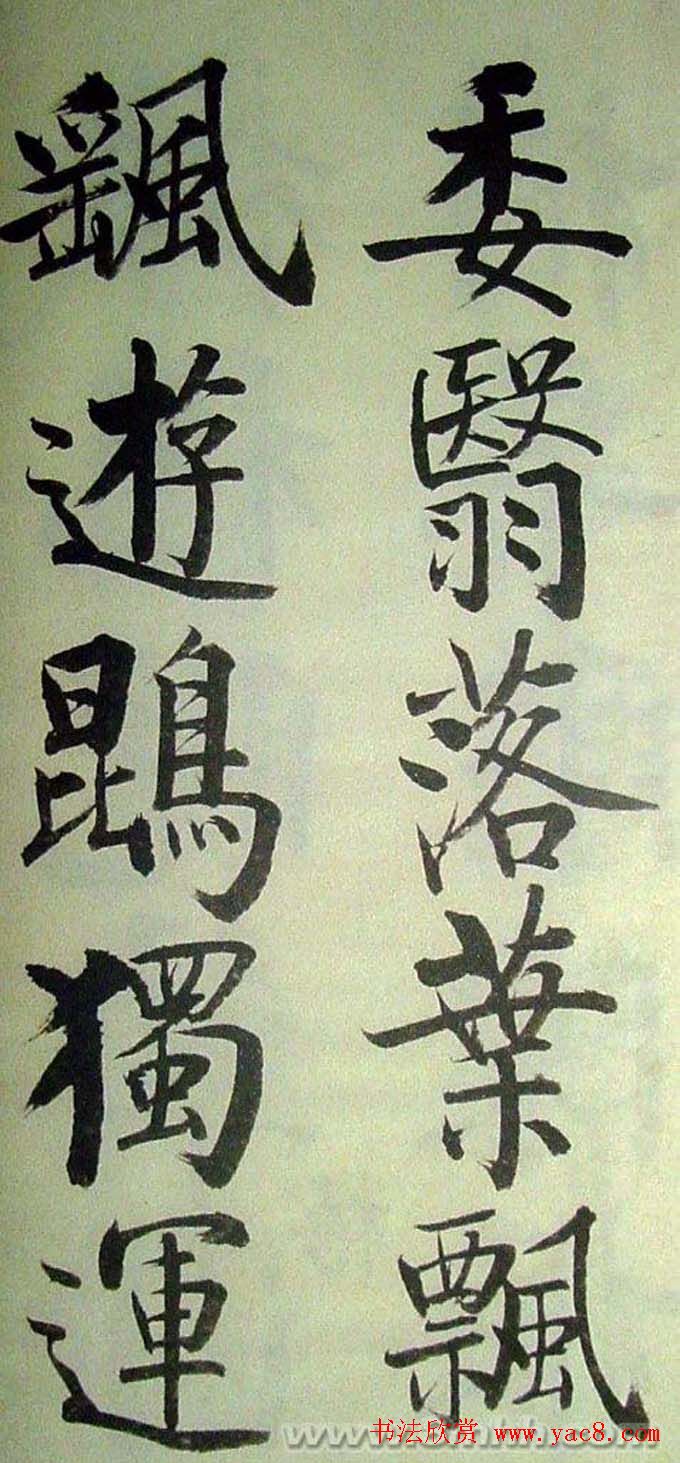 委翳落葉飄
颻遊鵾獨運
书法欣赏 www.yac8.com